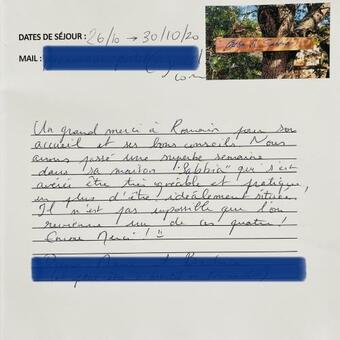 DATES DE SÉJOUR : 26/10 → 30/10/20
MAIL :
Un grand merci à Romain pour son
accueil et ses bons conseils. Nous
avons passé une superbe semaine
dans sa maison "Sabbia" qui s'est
avérée être très agréable et pratique,
en plus d'être idéalement située.
Il n'est pas impossible que l'on
revienne un de ces quatre !
Encore Merci !